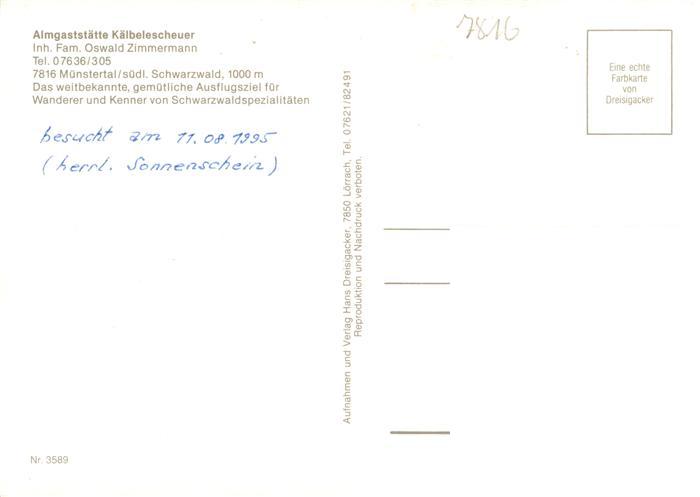 Almgaststätte Kälbelescheuer
Inh. Fam. Oswald Zimmermann
Tel. 07636/305
7816 Münstertal/südl. Schwarzwald, 1000 m
Das weitbekannte, gemütliche Ausflugsziel für
Wanderer und Kenner von Schwarzwaldspezialitäten
besucht am 11.08.1995
(herrl. Sonnenschein)
Nr. 3589
Aufnahmen und Verlag Hans Dreisigacker, 7850 Lörrach, Tel. 07621/82491
Reproduktion und Nachdruck verboten.
7816
Eine echte
Farbkarte
von
Dreisigacker